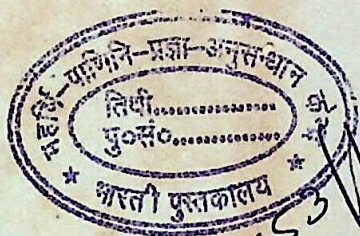 महर्षि-पाणिनि-प्रज्ञा-अनुसन्धान
तिथी..................
पु०सं०..................
★ भारती पुस्तकालय ★
53